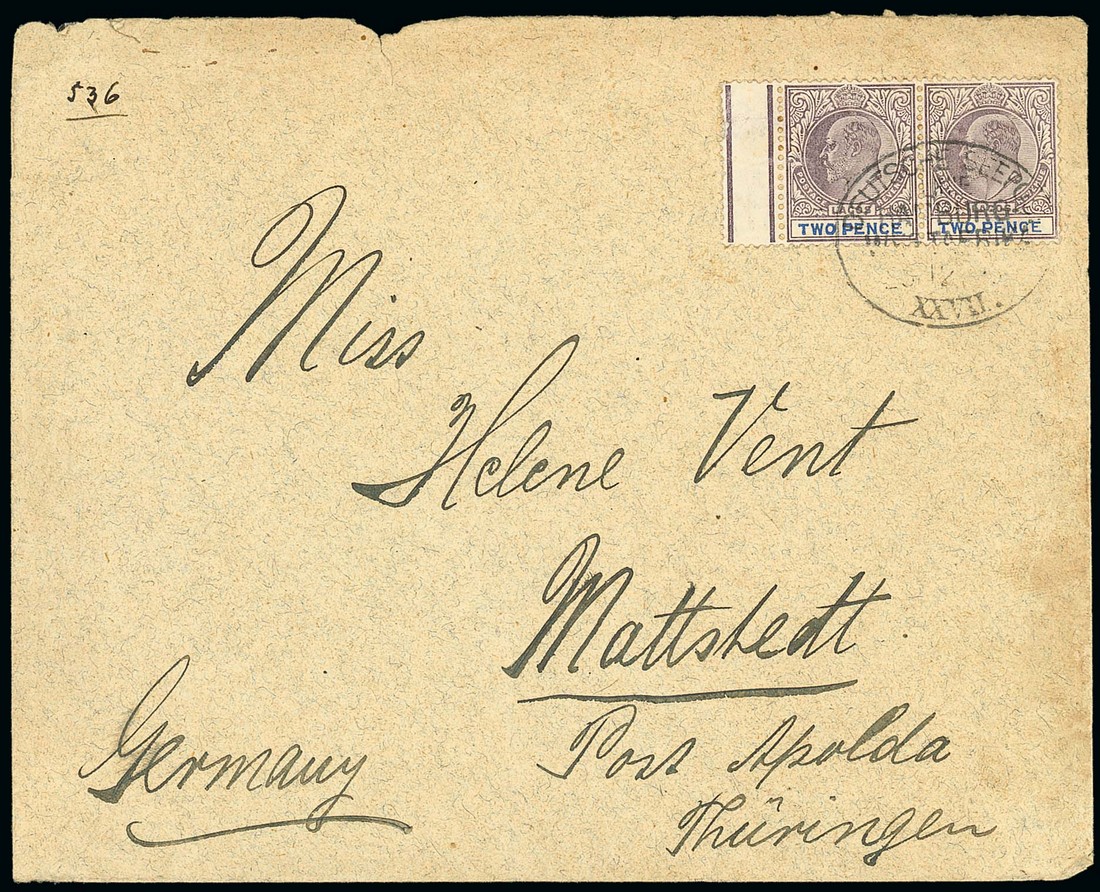 536
POSTAGE LAGOS POSTAGE
TWO PENCE
LAGOS
TWO PENCE
XXVII.
Miss
Helene Vent
Mattstedt
Post Apolda
Thüringen
Germany